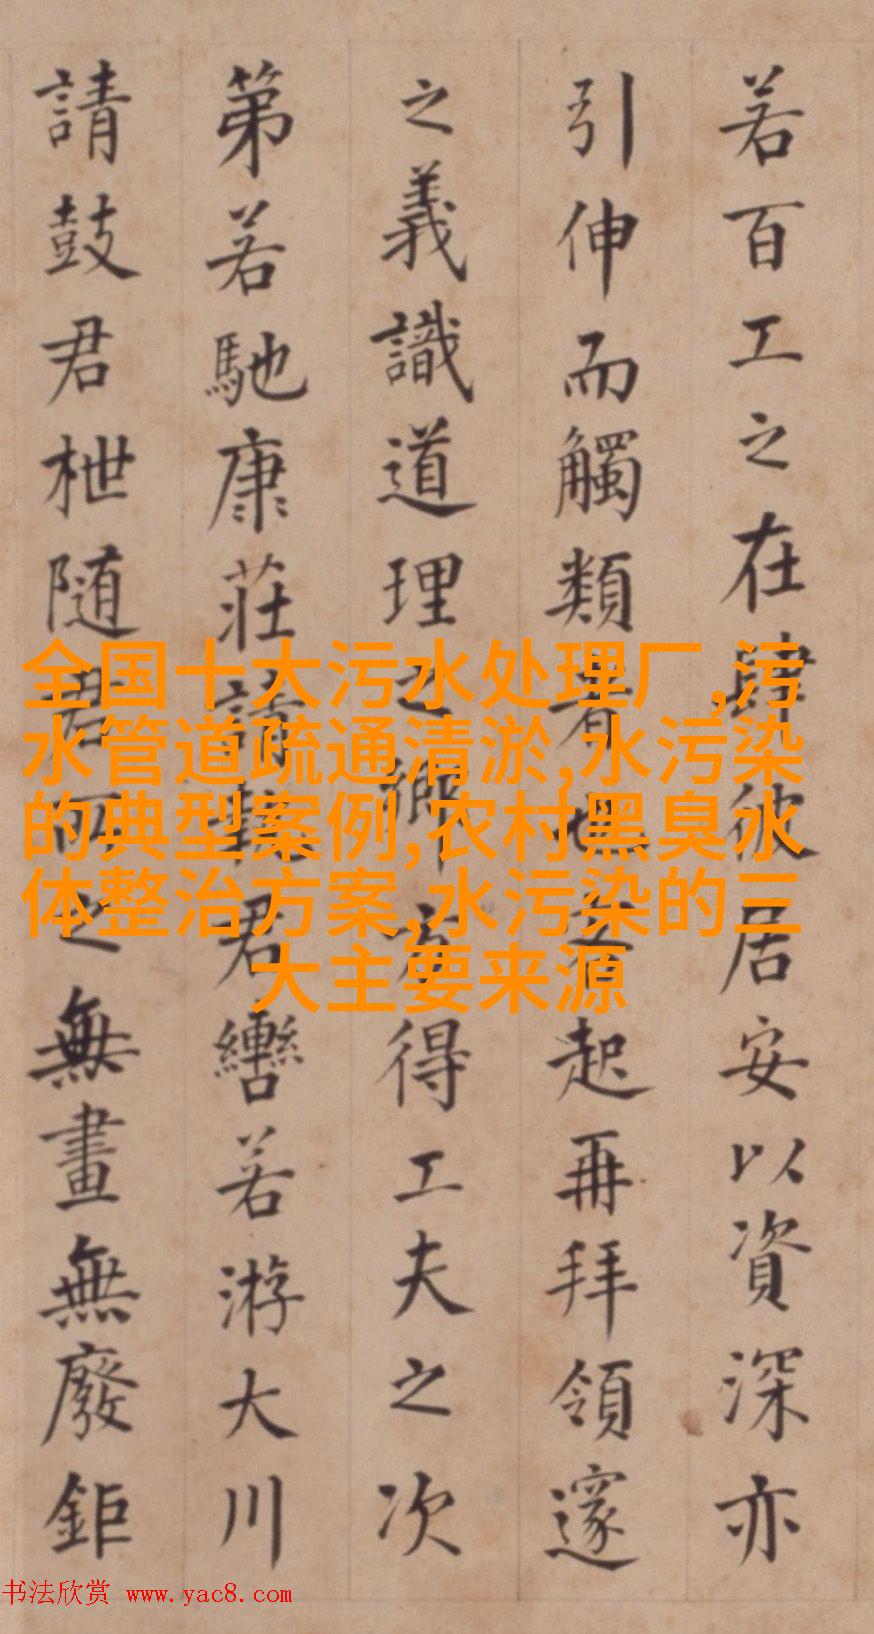 若百工之在肆彼居安以資深亦
引伸而觸類者也客起再拜領邃
之義識道理之鄉方得工夫之次
第若馳康莊請執君轡若游大川
請鼓君枻随君所之無畫無廢鉅
全国十大污水处理厂,污
水管道疏通清淤,水污染
的典型案例,农村黑臭水
体整治方案,水污染的三
大主要来源
书法欣赏 www.yac8.com